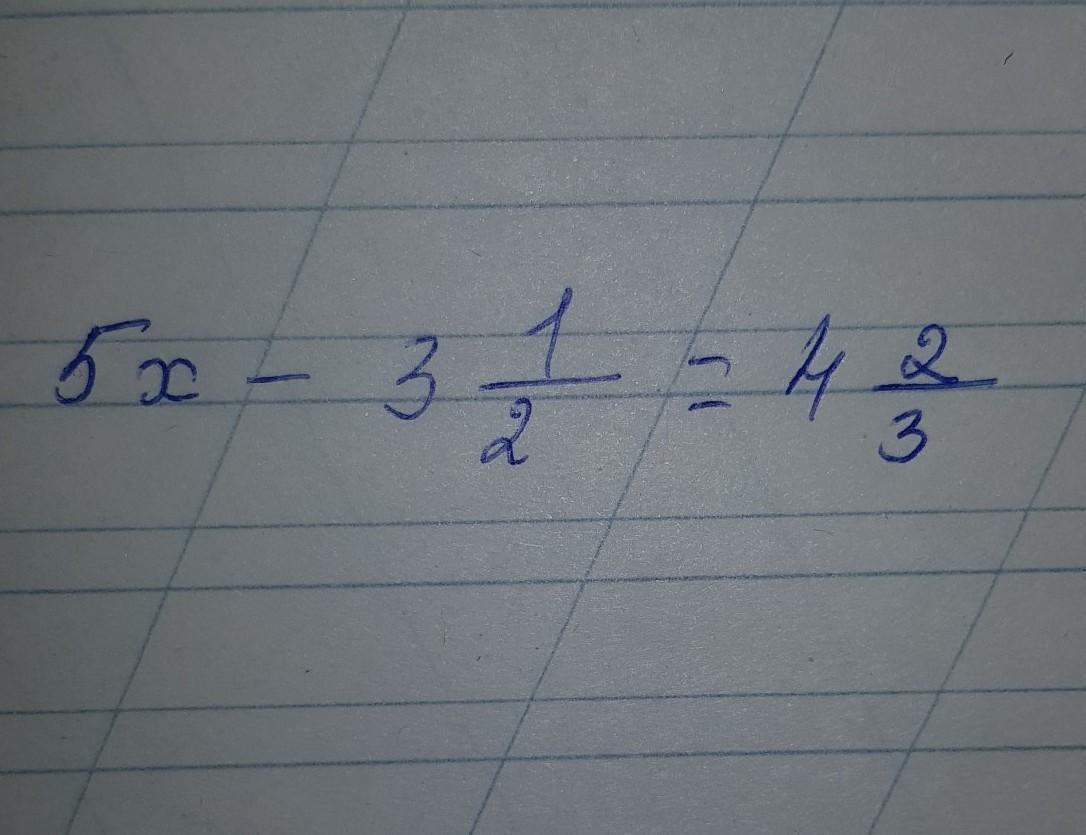 5x - 3 1/2 = 4 2/3